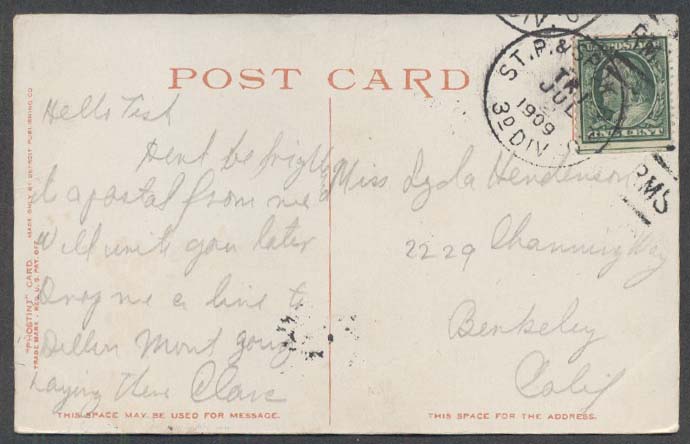 POST CARD
Hello
Dont be
a postal from me
Will write you later
Drop me a line to
Dillon Mont going
Laying there Clare
THIS SPACE MAY BE USED FOR MESSAGE.
"PHOSTINT" CARD MADE ONLY BY DETROIT PUBLISHING CO.
TRADE MARK - REG. U.S. PAT. OFF.
ST. P. & SPOK
TR 1
JUL
1909
3D DIV.
RMS
ONE CENT
Miss Lyda Henderson
2229 Channing Way
Berkeley
Calif
THIS SPACE FOR THE ADDRESS.